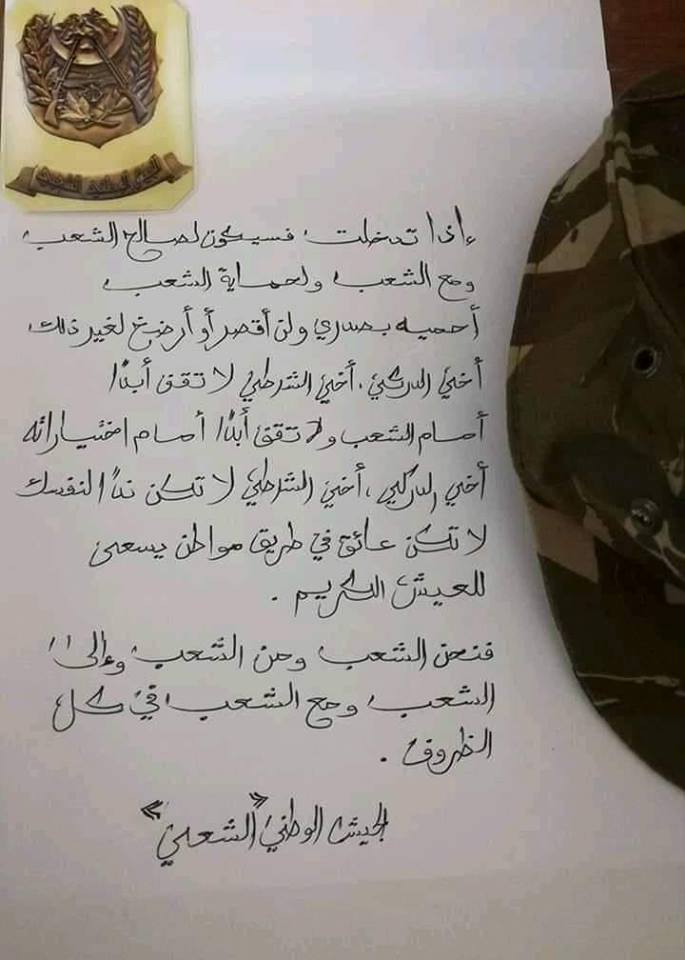 الجيش الوطني الشعبي
إذا تدخلت فسيكون لصالح الشعب
ومع الشعب ولحماية الشعب
أحميه بصدري ولن أقصر أو أرضخ لغير ذلك
أخي الدركي، أخي الشرطي لا تقف أبدًا
أمام الشعب ولا تقف أبدًا أمام اختياراته
أخي الدركي، أخي الشرطي لا تكن ندًا لنفسك
لا تكن عائق في طريق مواطن يسعى
للعيش الكريم.
فنحن الشعب ومن الشعب وإلى
الشعب ومع الشعب في كل
الظروف.
الجيش الوطني "الشعبي"